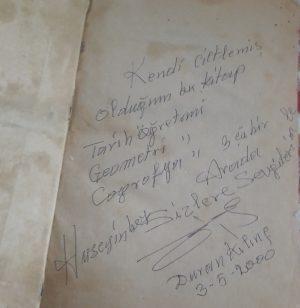 Kendi Ciltlemiş
olduğum bu kitap
Tarih öğretmeni
Geometri "
Coğrafya " 3 cü bir
Arada
Hüseyinbek Sizlere Sevgiler
Duran Kılınç
3-5-2000